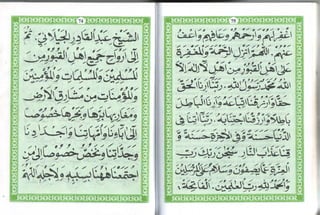 الشَّيْخِ عَبْدِ الْقَادِرِ الْجِيْلَانِي ثُمَّ
اِلَى اَرْوَاحِ جَمِيْعِ اَهْلِ الْقُبُوْرِ مِنَ
الْمُسْلِمِيْنَ وَالْمُسْلِمَاتِ وَالْمُؤْمِنِيْنَ
وَالْمُؤْمِنَاتِ مِنْ مَشَارِقِ الْاَرْضِ
وَمَغَارِبِهَا بَرِّهَا وَبَحْرِهَا خُصُوْصًا
اِلَى اٰبَائِنَا وَاُمَّهَاتِنَا وَاَجْدَادِنَا
وَجَدَّاتِنَا وَنَخُصُّ خُصُوْصًا اِلَى مَنِ
اجْتَمَعْنَا هٰهُنَا بِسَبَبِهِ وَلِاَجْلِهِ اَللّٰهُمَّ
اغْفِرْ لَهُمْ وَارْحَمْهُمْ وَعَافِهِمْ وَاعْفُ
عَنْهُمْ اَللّٰهُمَّ اَنْزِلِ الرَّحْمَةَ وَالْمَغْفِرَةَ
عَلَى اَهْلِ الْقُبُوْرِ مِنْ اَهْلِ لَا اِلٰهَ اِلَّا
اللهُ مُحَمَّدٌ رَسُوْلُ اللهِ رَبَّنَا اَرِنَا الْحَقَّ
حَقًّا وَارْزُقْنَا اتِّبَاعَهُ وَاَرِنَا الْبَاطِلَ
بَاطِلًا وَارْزُقْنَا اجْتِنَابَهُ رَبَّنَا اٰتِنَا فِى
الدُّنْيَا حَسَنَةً وَفِى الْاٰخِرَةِ حَسَنَةً وَ
قِنَا عَذَابَ النَّارِ سُبْحٰنَ رَبِّكَ رَبِّ
الْعِزَّةِ عَمَّا يَصِفُوْنَ وَسَلَامٌ عَلَى الْمُرْسَلِيْنَ
وَالْحَمْدُ لِلّٰهِ رَبِّ الْعٰلَمِيْنَ اَلْفَاتِحَةَ